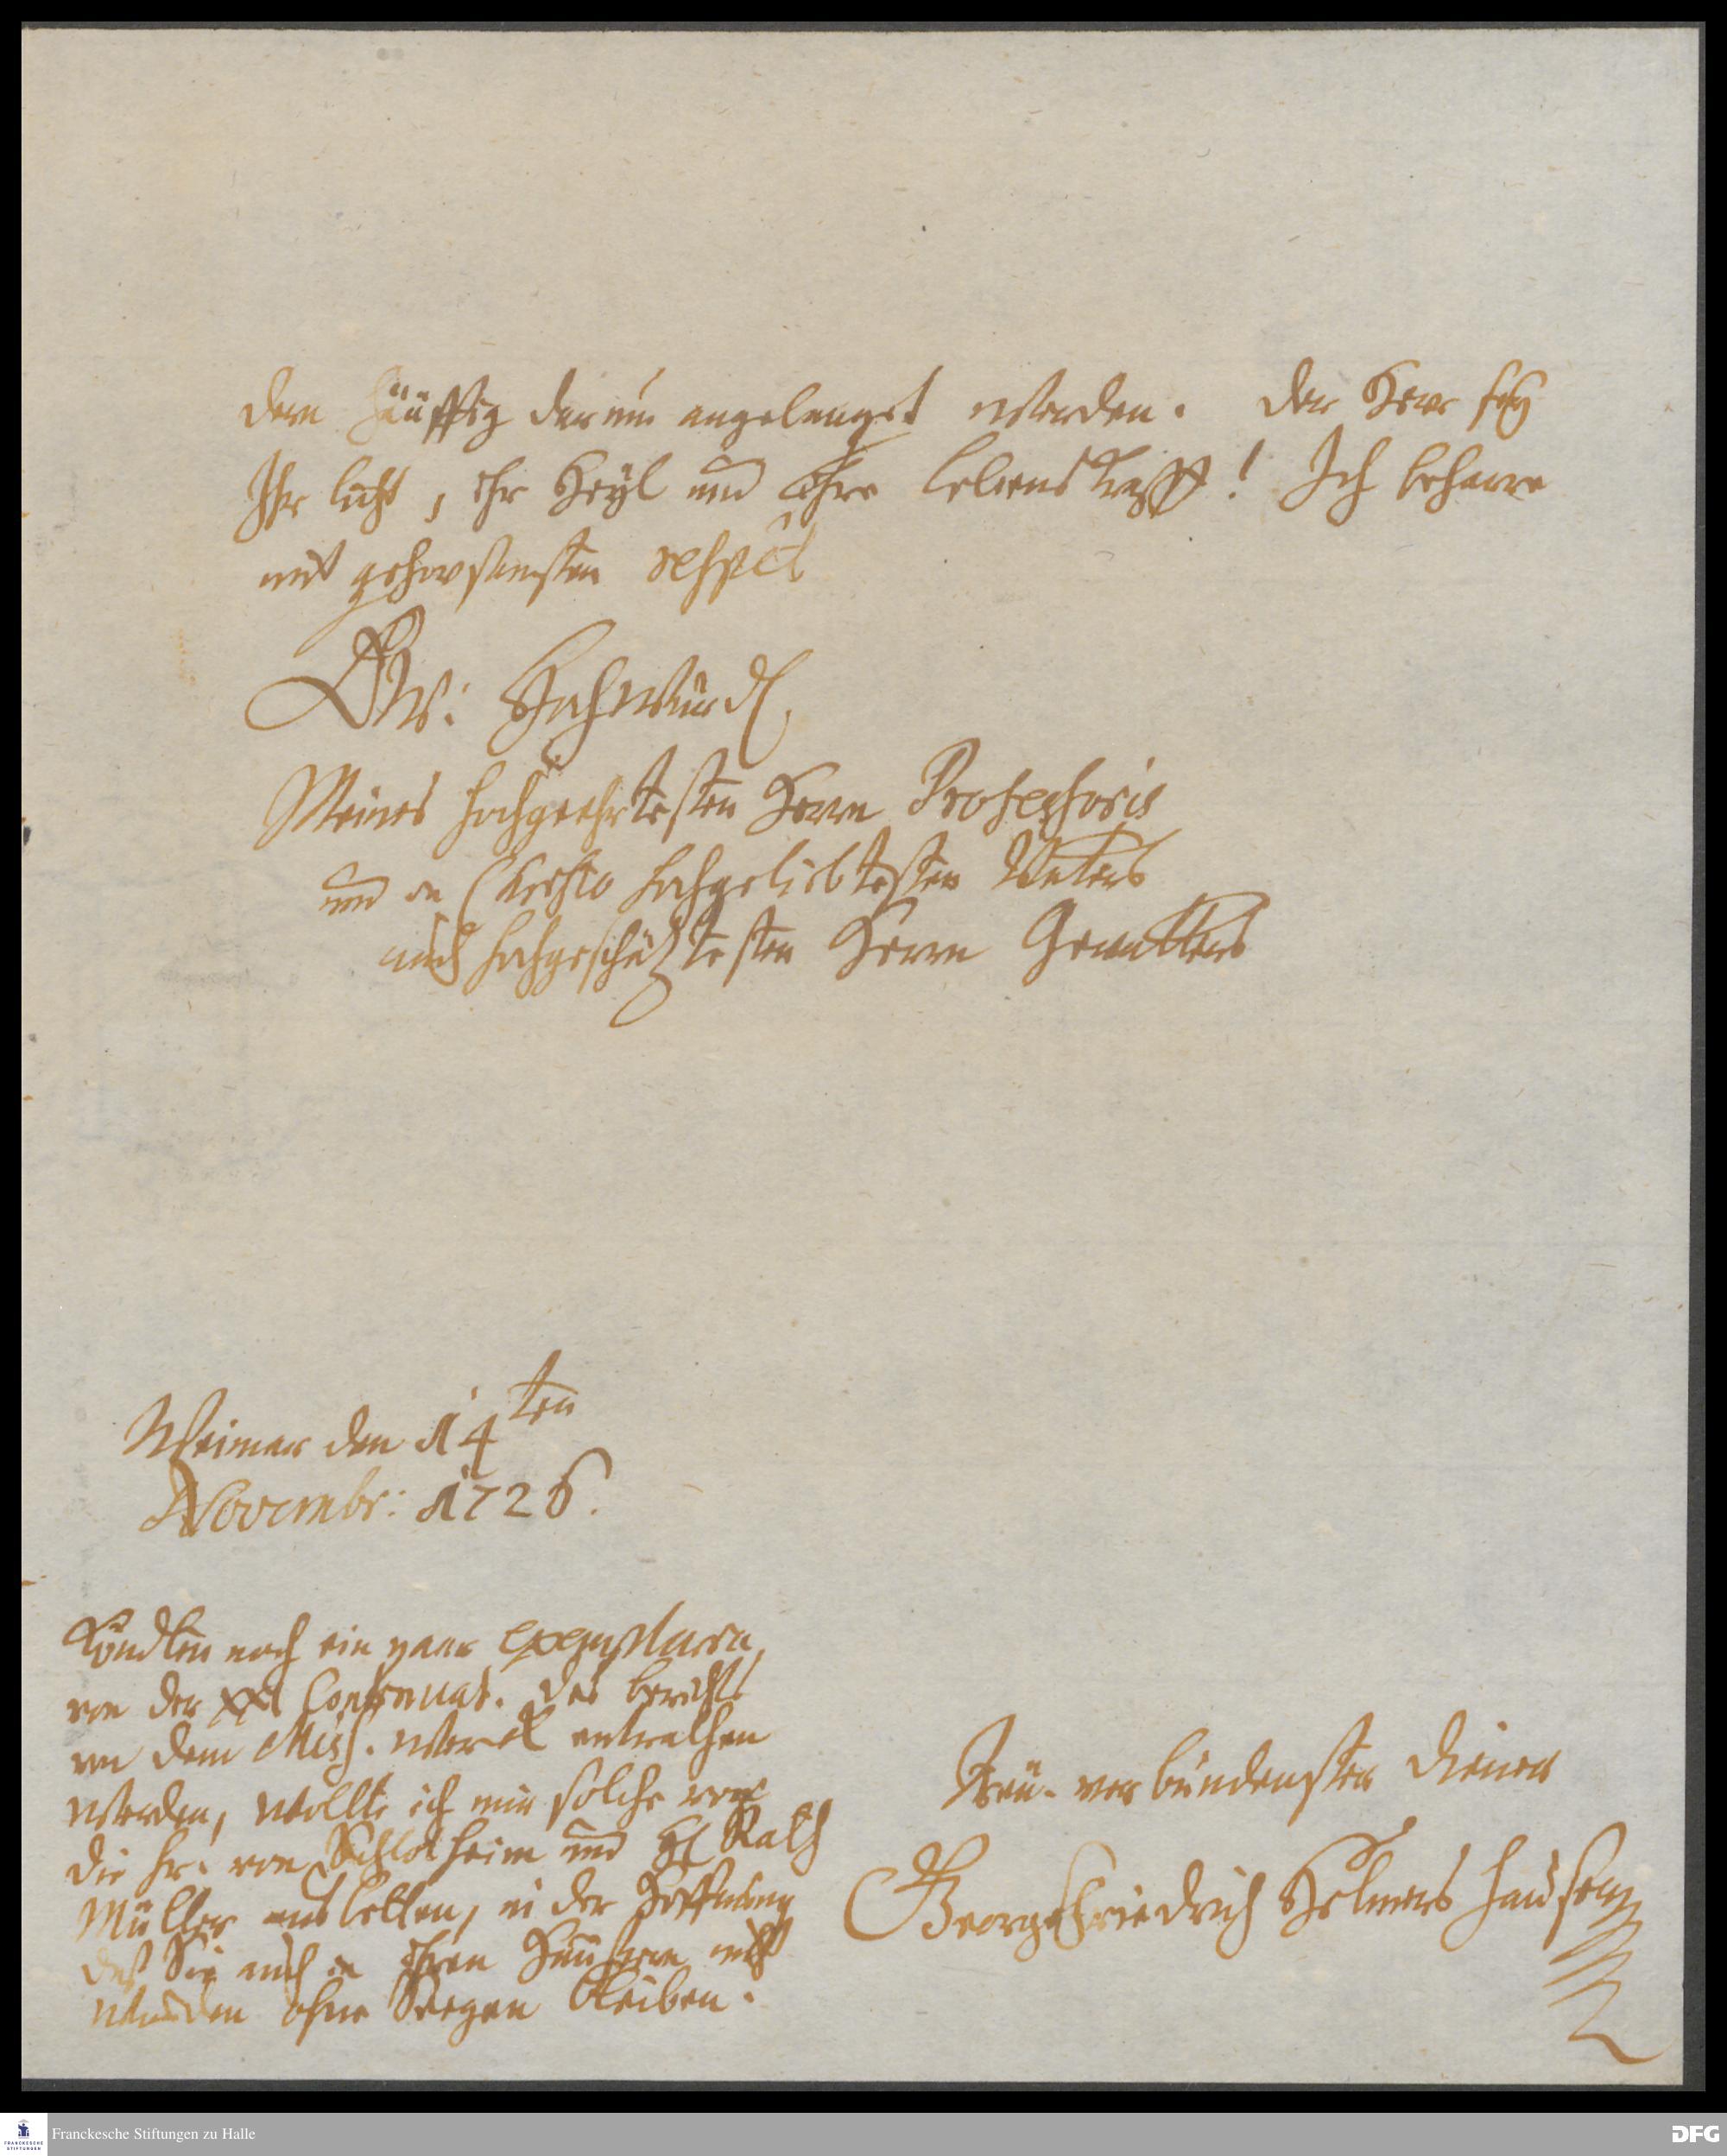 dern häuffig darum angelanget worden. der Herr sey
Ihr licht, ihr Heyl und Ihre lebens krafft! Ich beharre
mit gehorsamsten respect
Ew: Hochwürd.
Meines hochgeehrtesten Herrn Professoris
und in Christo hochgeliebtesten Vaters
auch hochgeschätztesten Herrn Gevatters
Weimar den 14ten
Novembr: 1726.
Könten noch ein paar exemplaria
von der XXI Continuat. des berichts
von dem Miss. werck entrathen
werden, wollte ich mir solche vor
die Hr. von Schlotheim und H. Rath
Müller ausbitten, in der Hoffnung
daß Sie auch in ihren Häusern nicht
würden ohne Seegen bleiben.
Treu-verbundenster diener
Georg Friedrich Helmershausen
Franckesche Stiftungen zu Halle
FRANCKESCHE
STIFTUNGEN
DFG